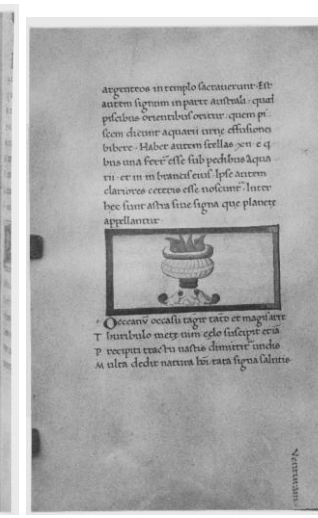 argenteos in templo sacraverunt. Est
autem signum in parte australi. quod
piscibus orientibus oritur. quem pi
scem dicunt aquarii urne effusiones
bibere. Habet autem stellas xii. e q
bus una ferr esse sub pedibus aqua
rii. et in in branciis eius. Ipse autem
clariores ceteris esse noscunt. Inter
hec sunt astra sive signa que planete
appellantur.
Occeanu occasu tagit tato et magis arte
Thuribulo mete tum celo suscipit etia
Precipiti tractu vastis dimittit undis
Multa dedit natura hoi rata signa salutis